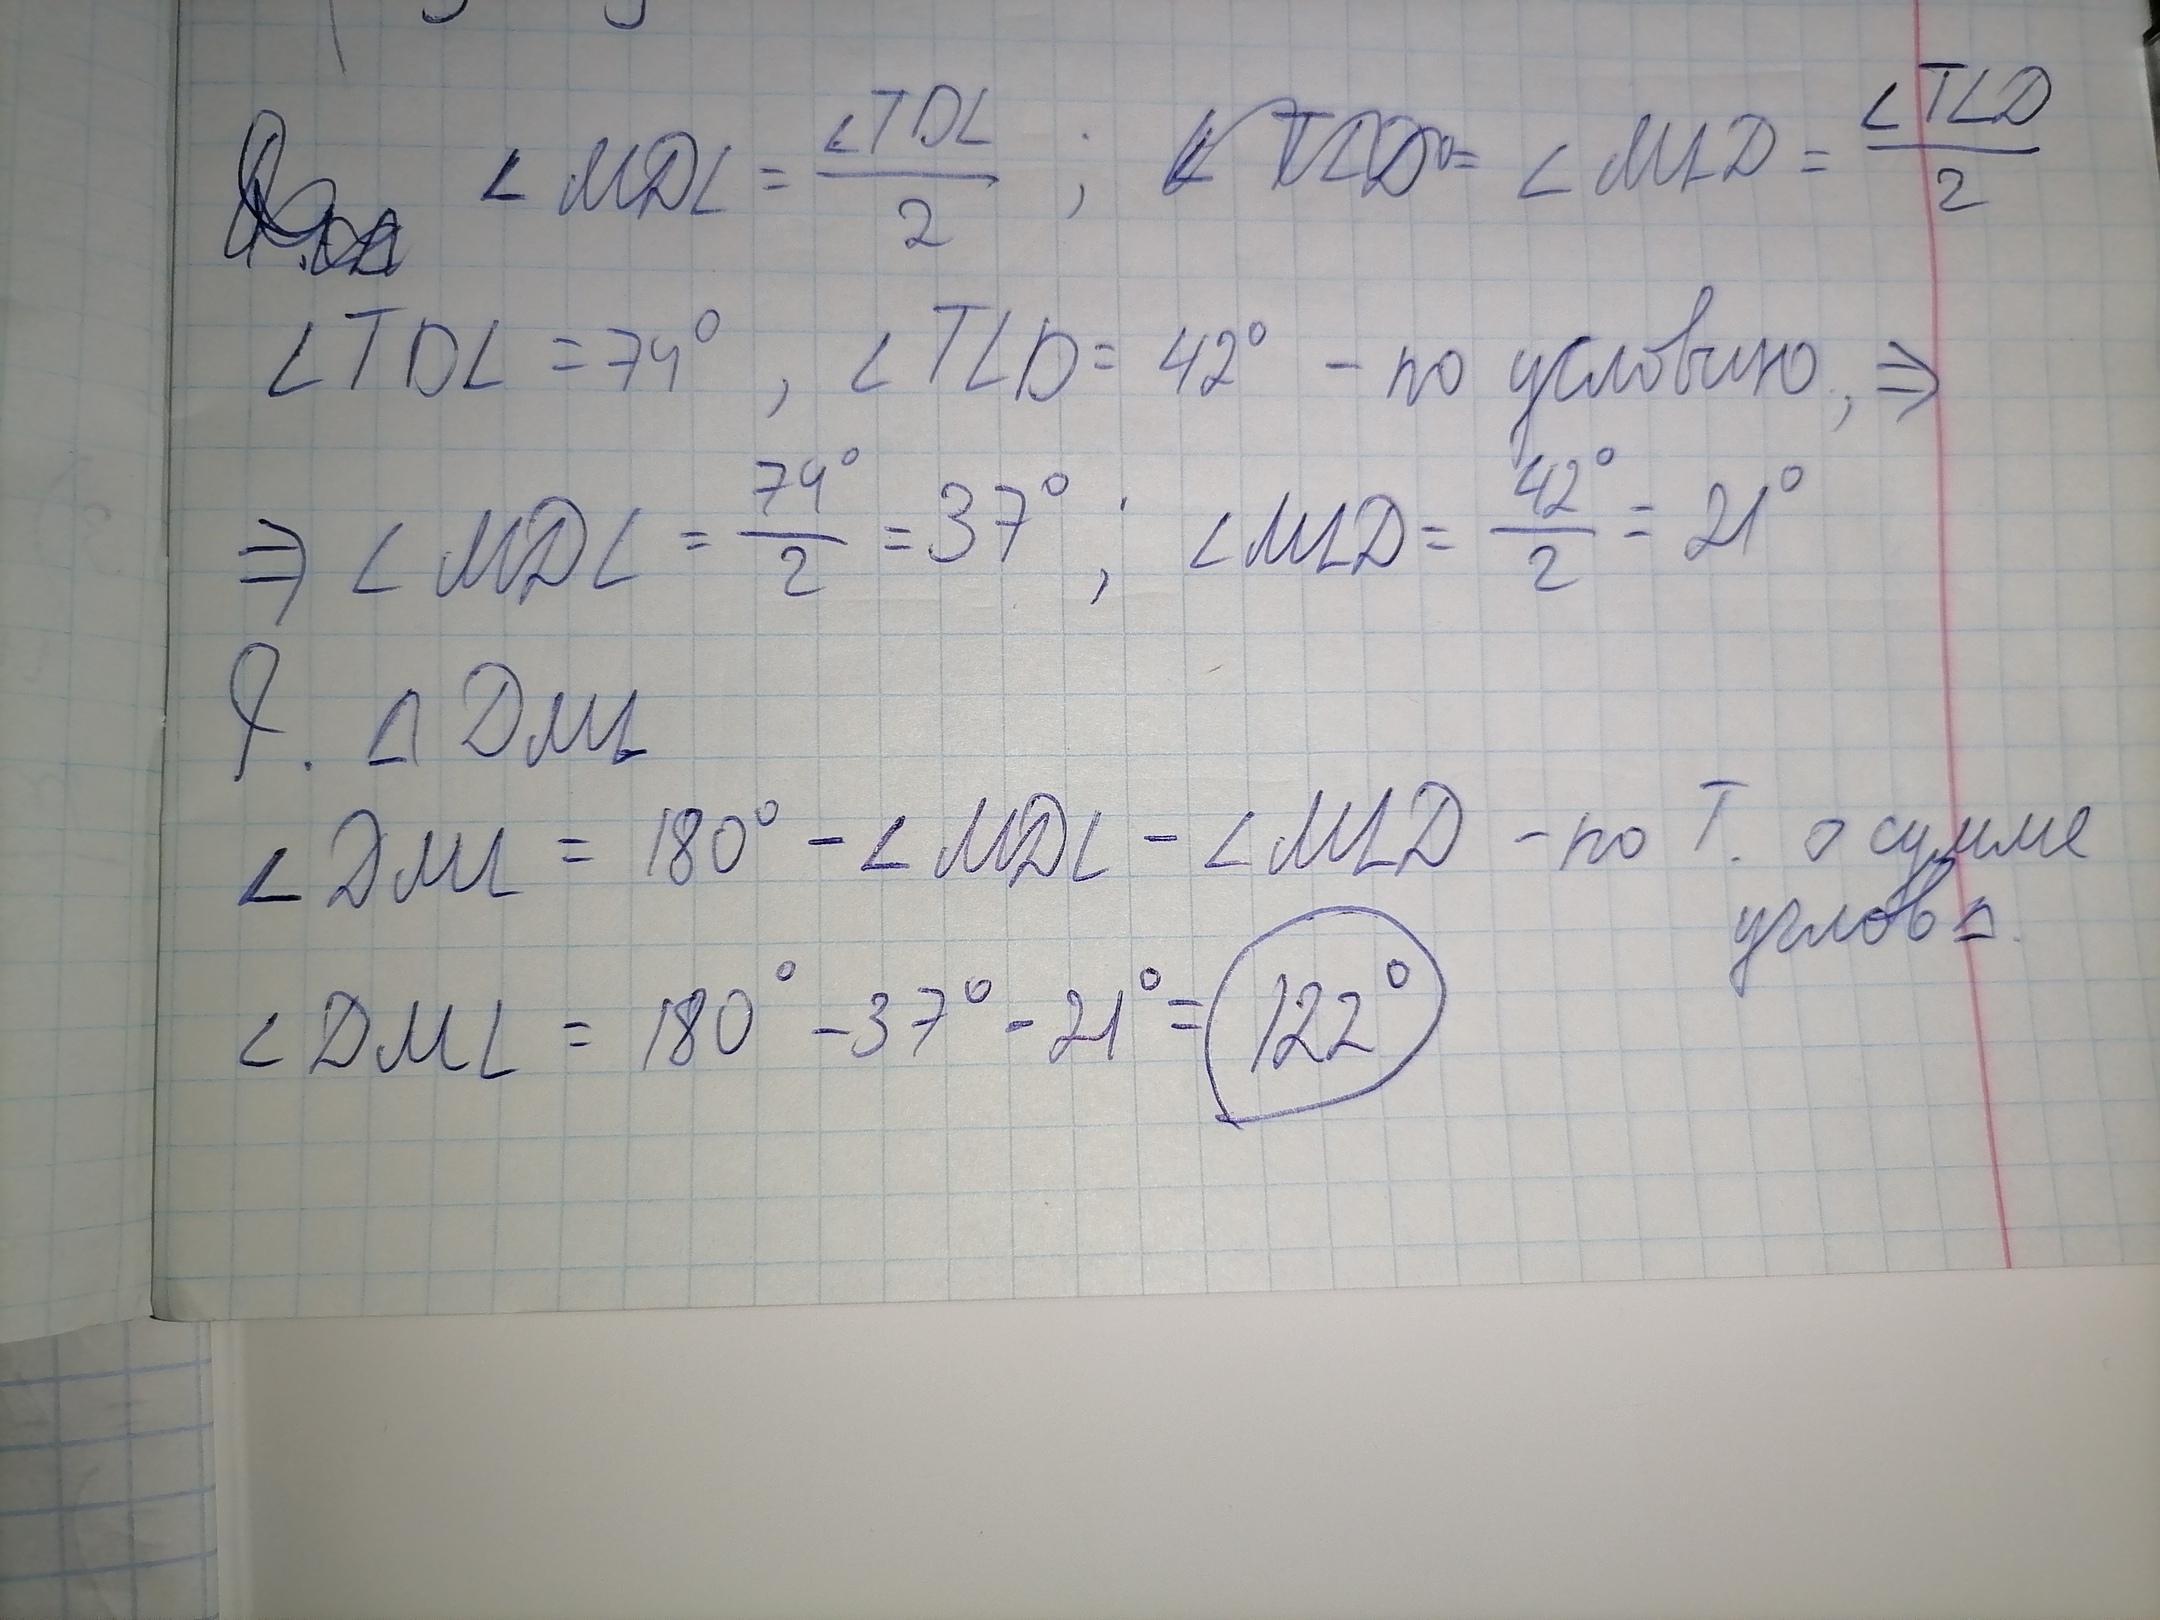 ∠MDL = ∠TDL/2 ; ∠TLD = ∠MLD = ∠TLD/2
∠TDL = 74°, ∠TLD = 42° - по условию, ⇒
⇒ ∠MDL = 74°/2 = 37° ; ∠MLD = 42°/2 = 21°
Р. △ DML
∠DML = 180° - ∠MDL - ∠MLD - по Т. о сумме
углов △.
∠DML = 180° - 37° - 21° = 122°